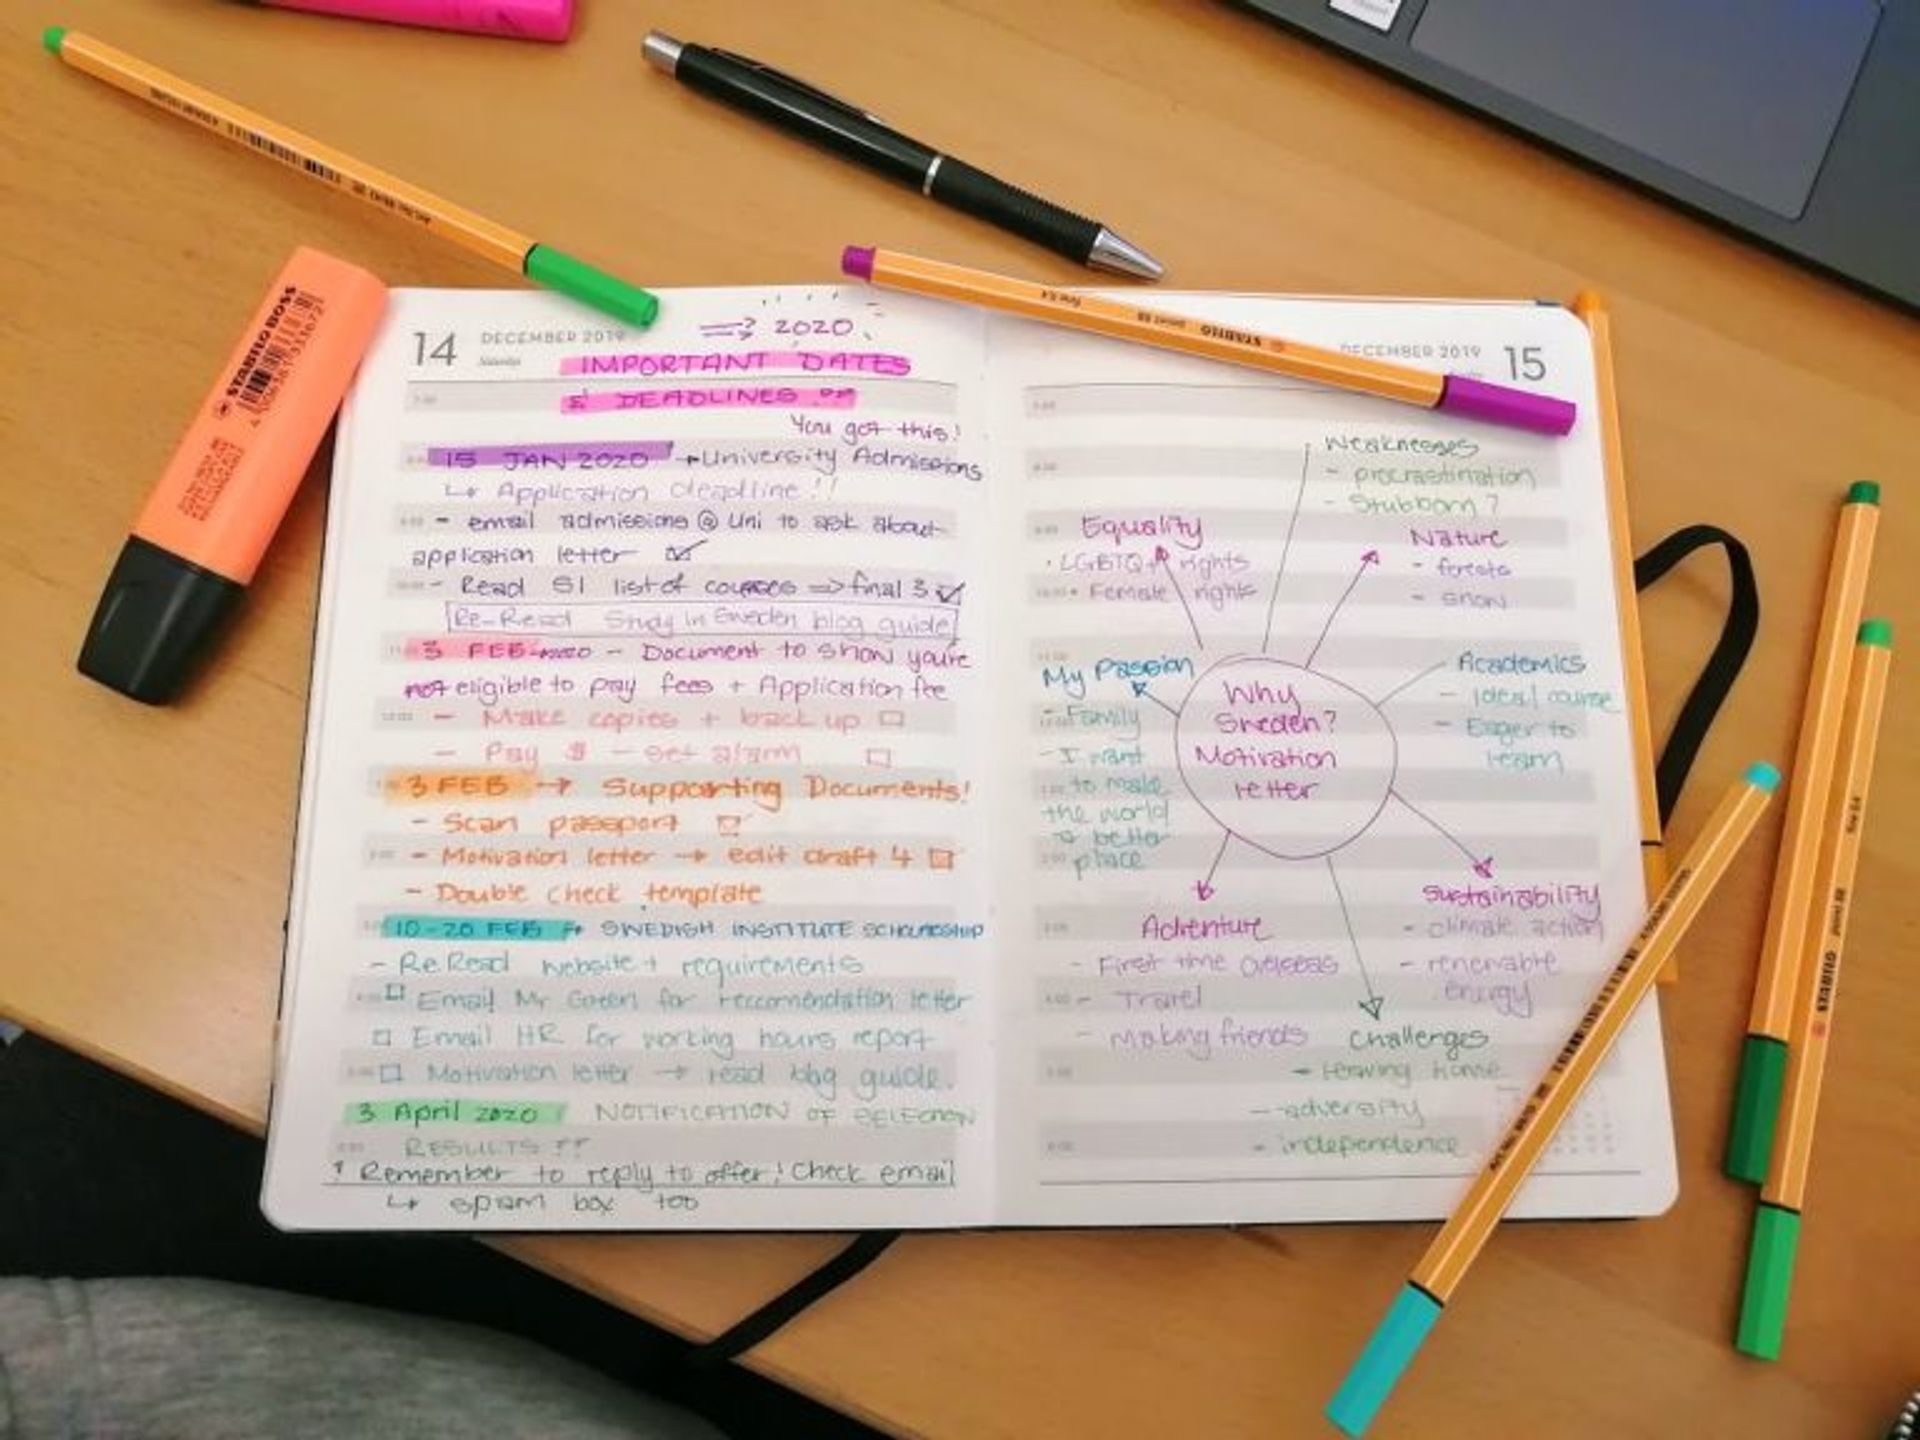 STABILO BOSS
14
DECEMBER 2019
Saturday
=> 2020
IMPORTANT DATES
& DEADLINES
You got this!
15 JAN 2020 → University Admissions
↳ Application deadline!!
- email admissions @ Uni to ask about
application letter ☑
- Read SI list of courses => final 3 ☑
Re-Read Study in Sweden blog guide
3 FEB - Document to show you're
not eligible to pay fees + Application fee
- Make copies + back up ☐
- Pay $ - set alarm ☐
3 FEB → Supporting Documents!
- Scan passport ☑
- Motivation letter → edit draft 4 ☑
- Double check template
10-20 FEB → SWEDISH INSTITUTE SCHOLARSHIP
- Re Read website + requirements
☐ Email Mr Green for reccomendation letter
☐ Email HR for working hours report
☐ Motivation letter → read blog guide.
3 April 2020 NOTIFICATION OF SELECTION
RESULTS ??
! Remember to reply to offer! Check email
↳ spam box too
DECEMBER 2019
15
STABILO
Weaknesses
- procrastination
- Stubborn?
Equality
· LGBTQ+ rights
• Female rights
Nature
- forests
- snow
My Passion
- Family
- I want
to make
the world
a better
place
Why
Sweden?
Motivation
letter
Academics
- Ideal course
- Eager to
learn
Adventure
- First time overseas
- Travel
- Making friends
Sustainability
- climate action
- renewable
energy
Challenges
- leaving home
- adversity
- independence